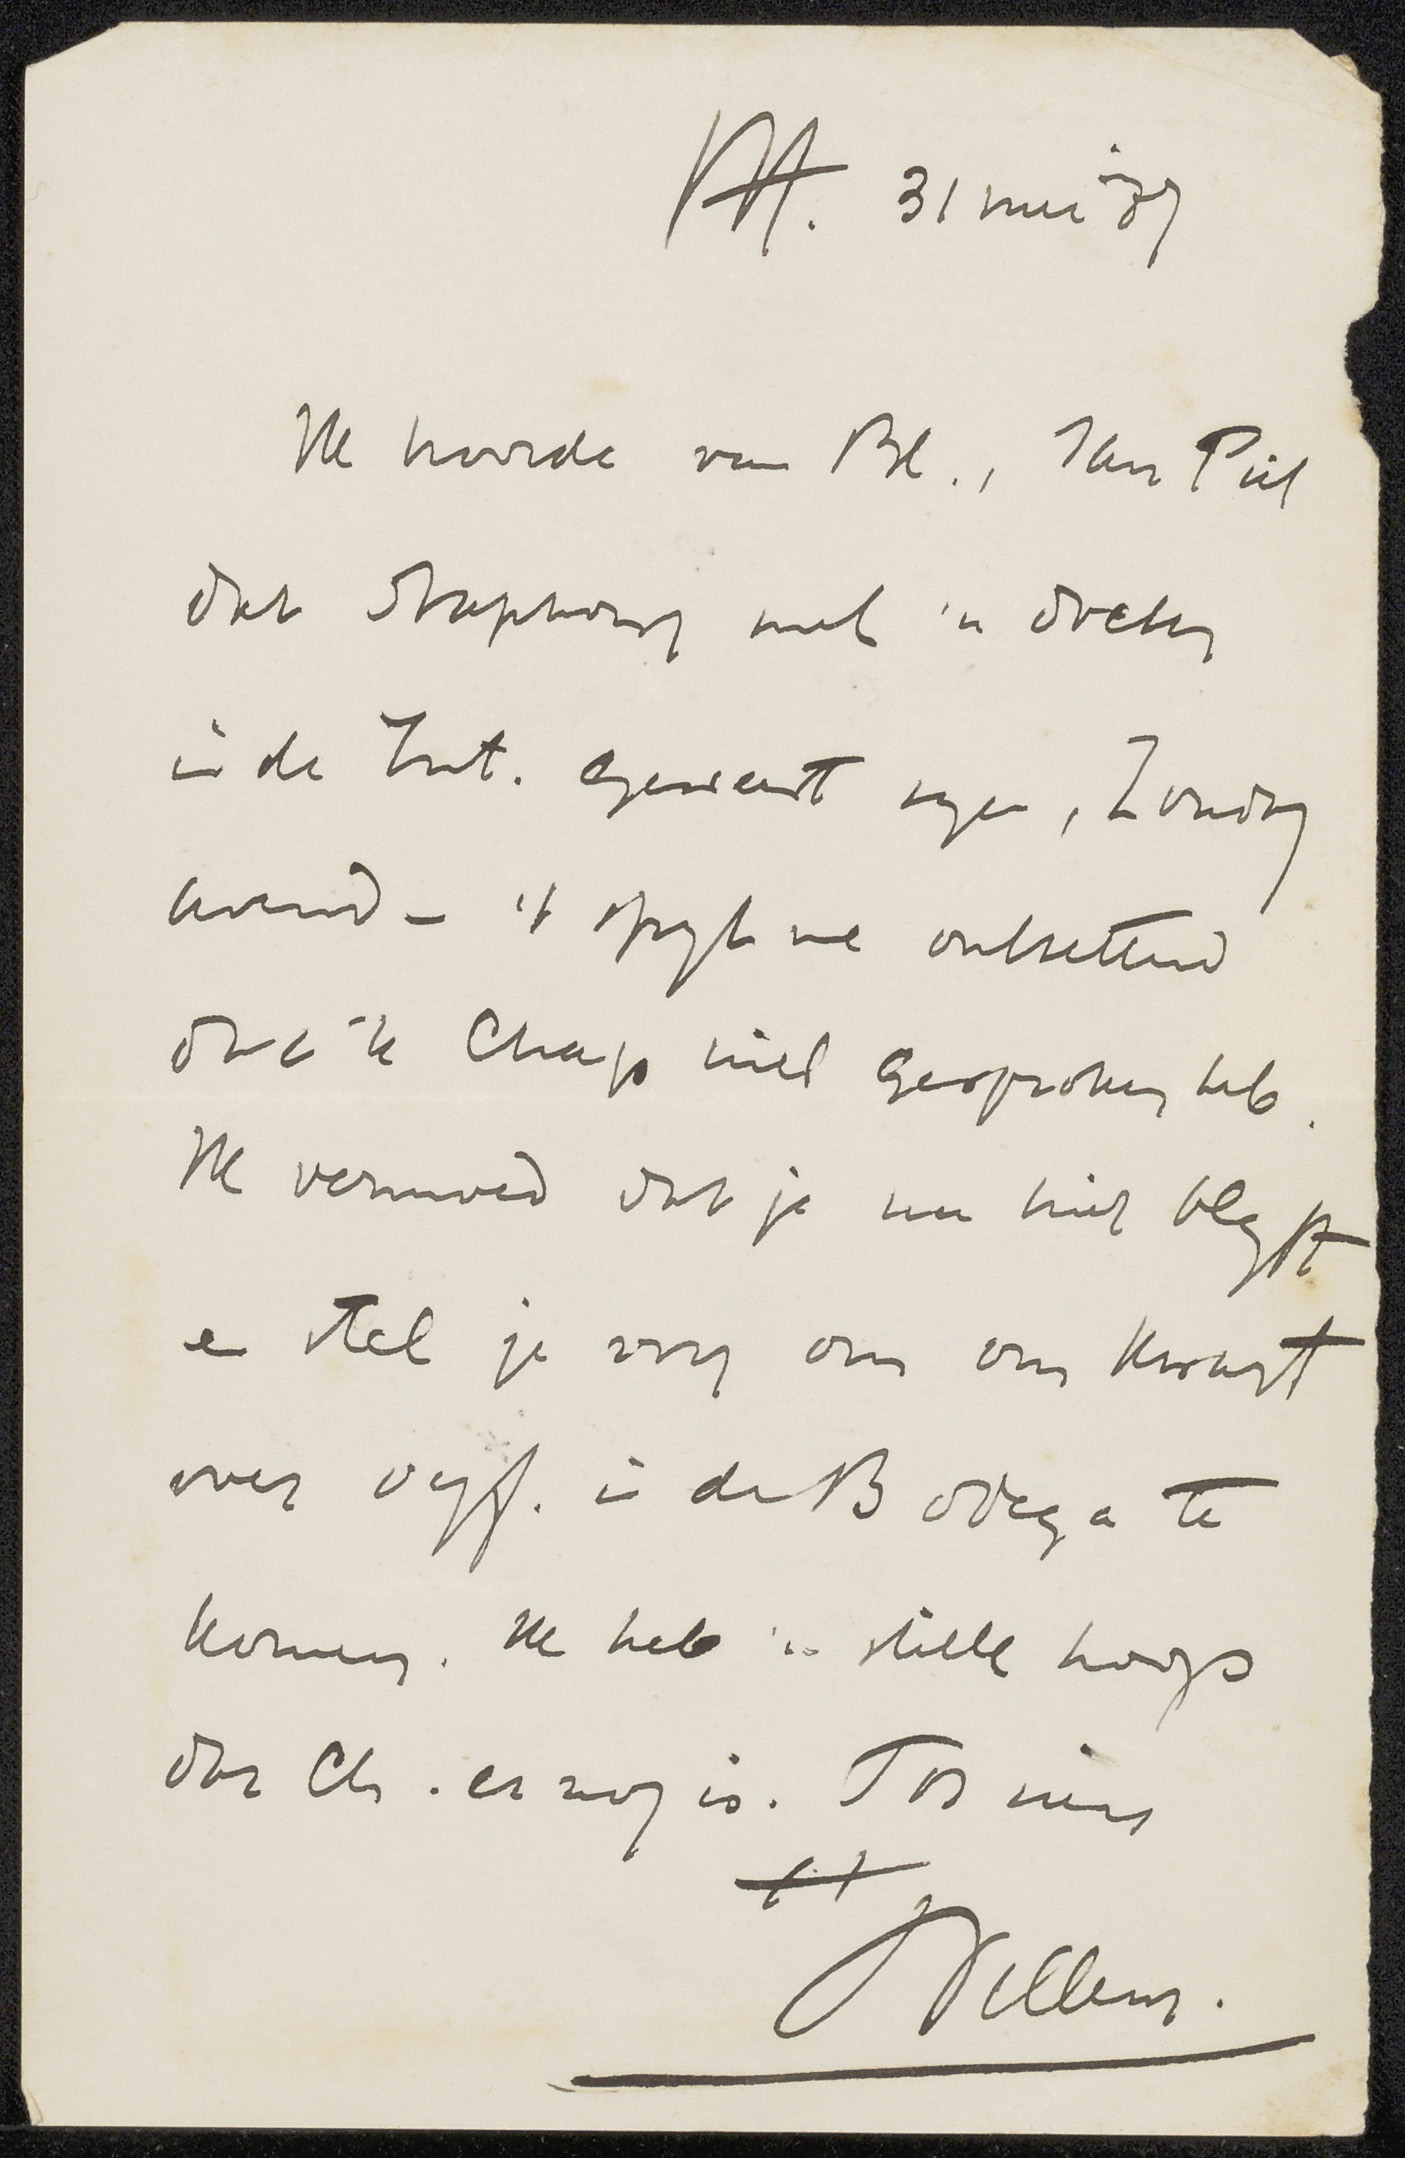 31 mei '89
Ik hoorde van Bl., Jan Piet
dat Staphorst met 'n
in de Int. geweest zyn, Zondag
avond – 't spyt me ontzettend
dat ik Chap niet gesproken heb.
Ik vermoed dat je nu hier blyft
en stel je voor om om kwart
over vyf. in de Bodega te
komen. Ik heb 'n stille hoop
dat Ch. er nog is. Tot ziens
tt
Willem.